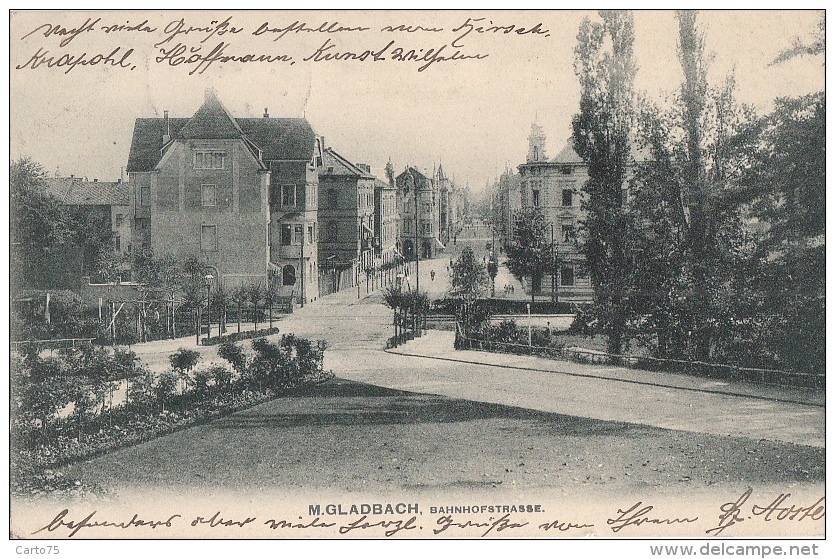 recht viele Grüße bestellen von Hirsch,
Krapohl, Höffmann, Kunst Wilhelm
M.GLADBACH, BAHNHOFSTRASSE.
besonders aber viele herzl. Grüße von Ihrem
Carto75
http://carto75.delcampe.net